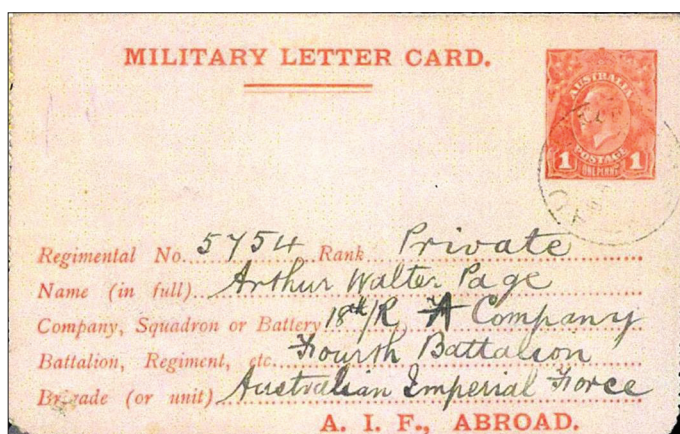 MILITARY LETTER CARD.
AUSTRALIA
POSTAGE
1 ONE PENNY 1
Regimental No. 5754 Rank Private
Name (in full) Arthur Walter Page
Company, Squadron or Battery 18th/R A Company
Battalion, Regiment, etc. Fourth Battalion
Brigade (or unit) Australian Imperial Force
A. I. F., ABROAD.